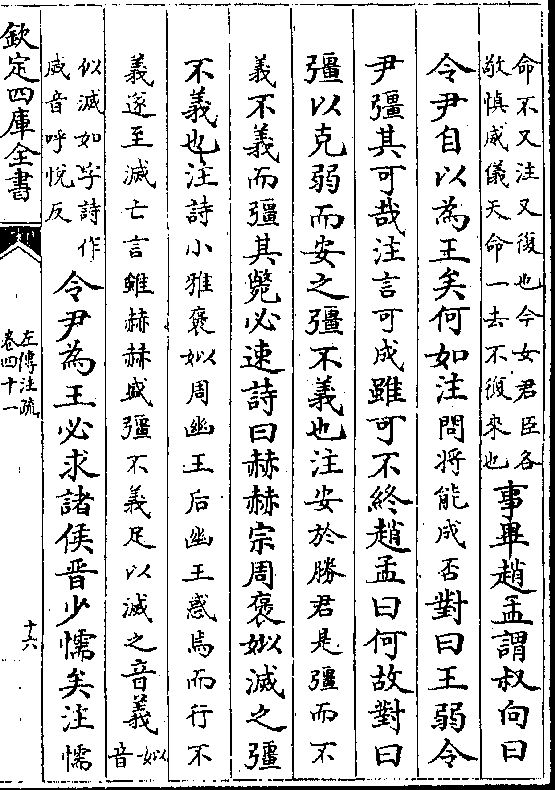 命不又注又復也今女君臣各
敬慎威儀天命一去不復來也
事畢趙孟謂叔向曰
令尹自以為王矣何如注問將能成否對曰王弱令
尹彊其可哉注言可成雖可不終趙孟曰何故對曰
彊以克弱而安之彊不義也注安於勝君是彊而不
義不義而彊其斃必速詩曰赫赫宗周褒姒滅之彊
不義也注詩小雅褒姒周幽王后幽王惑焉而行不
義遂至滅亡言雖赫赫盛彊不義足以滅之音義姒音
似滅如字詩作
烕音呼悅反
令尹為王必求諸侯晉少懦矣注懦
欽定四庫全書
左傳注疏
卷四十一
十六